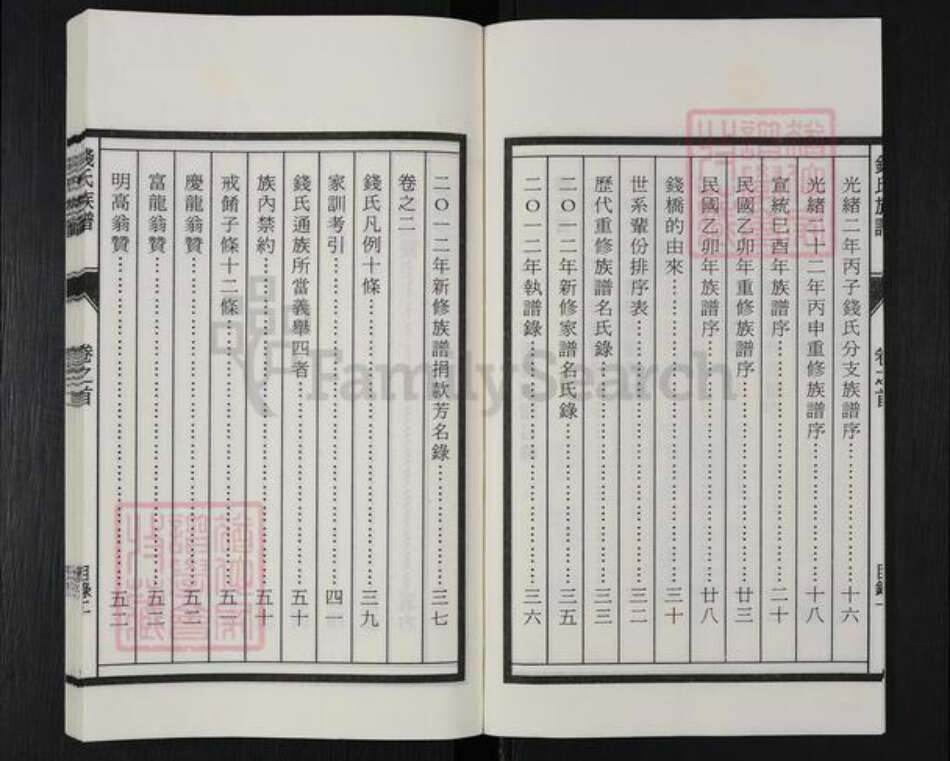 光緒二年丙子錢氏分支族譜序……十六
光緒二十二年丙申重修族譜序……十八
宣統巳酉年族譜序……二十
民國乙卯年重修族譜序……廿三
民國乙卯年族譜序……廿八
錢橋的由來……三十
世系輩份排序表……三二
歷代重修族譜名氏錄……三三
二〇一二年新修家譜名氏錄……三五
二〇一二年執譜錄……三六
二〇一二年新修族譜捐款芳名錄……三七
卷之二
錢氏凡例十條……三九
家訓考引……四一
錢氏通族所當義舉四者……五十
族內禁約……五十
戒餚子條十二條……五一
慶龍翁贊……五二
富龍翁贊……五二
明高翁贊……五二
錢氏族譜
卷之首
目錄二
FamilySearch